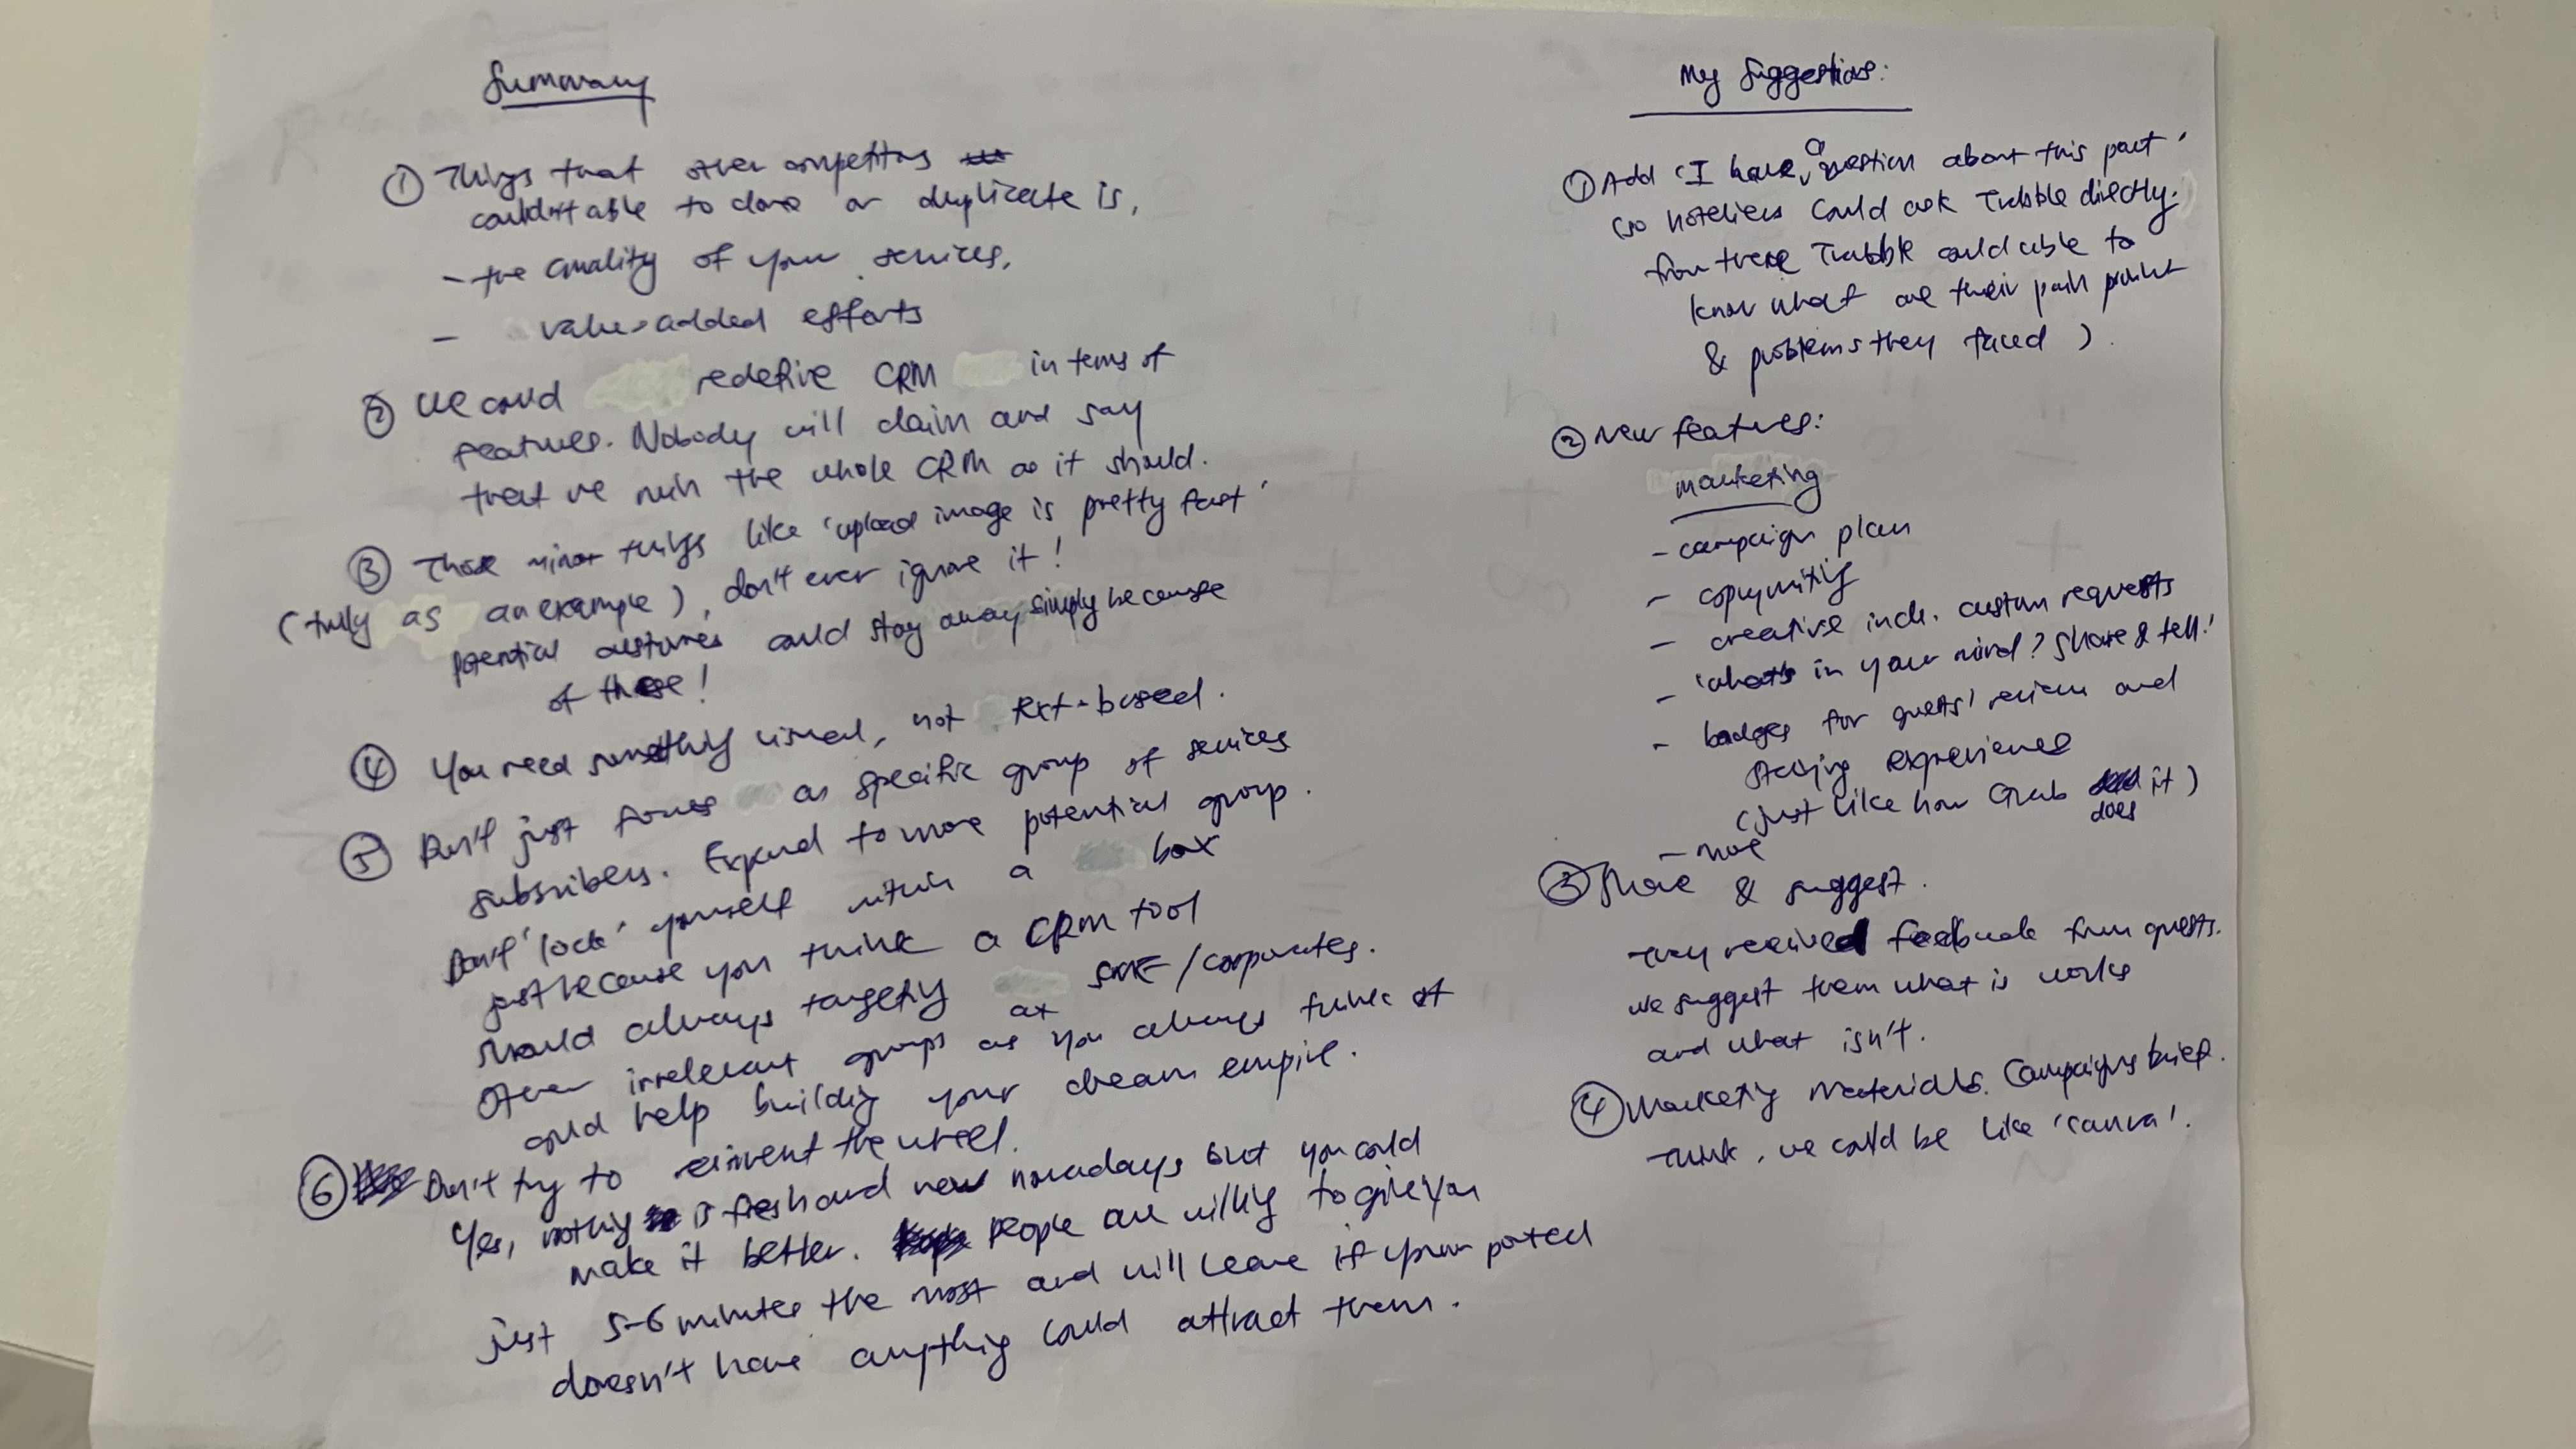 Summary
① Things that other competitors
couldn't able to clone or duplicate is,
- the quality of your services,
- value-added efforts
② We could redefine CRM in terms of
features. Nobody will claim and say
that we ruin the whole CRM as it should.
③ Those minor things like 'upload image is pretty fast'
(truly as an example), don't ever ignore it!
potential customers could stay away simply because
of those!
④ You need something visual, not text-based.
⑤ Don't just focus on specific group of services
subscribers. Expand to more potential group.
Don't 'lock' yourself within a box
just because you think a CRM tool
should always targeting at SME/corporates.
Other irrelevant groups as you always think of
could help building your dream empire.
⑥ Don't try to reinvent the wheel.
Yes, nothing is fresh and new nowadays but you could
make it better. People are willing to give you
just 5-6 minutes the most and will leave if your portal
doesn't have anything could attract them.
My Suggestions:
① Add 'I have a question about this part'
(so hoteliers could ask Trabble directly.
from there Trabble could able to
know what are their pain point
& problems they faced).
② New features:
marketing
- campaign plan
- copywriting
- creative incl. custom requests
- 'what's in your mind? Share & tell!'
- badges for guests' review and
staying experience
(just like how Grab does it)
- more
③ Share & suggest.
They received feedback from guests.
we suggest them what is works
and what isn't.
④ Marketing materials. Campaigns brief.
Think, we could be like 'canva'.